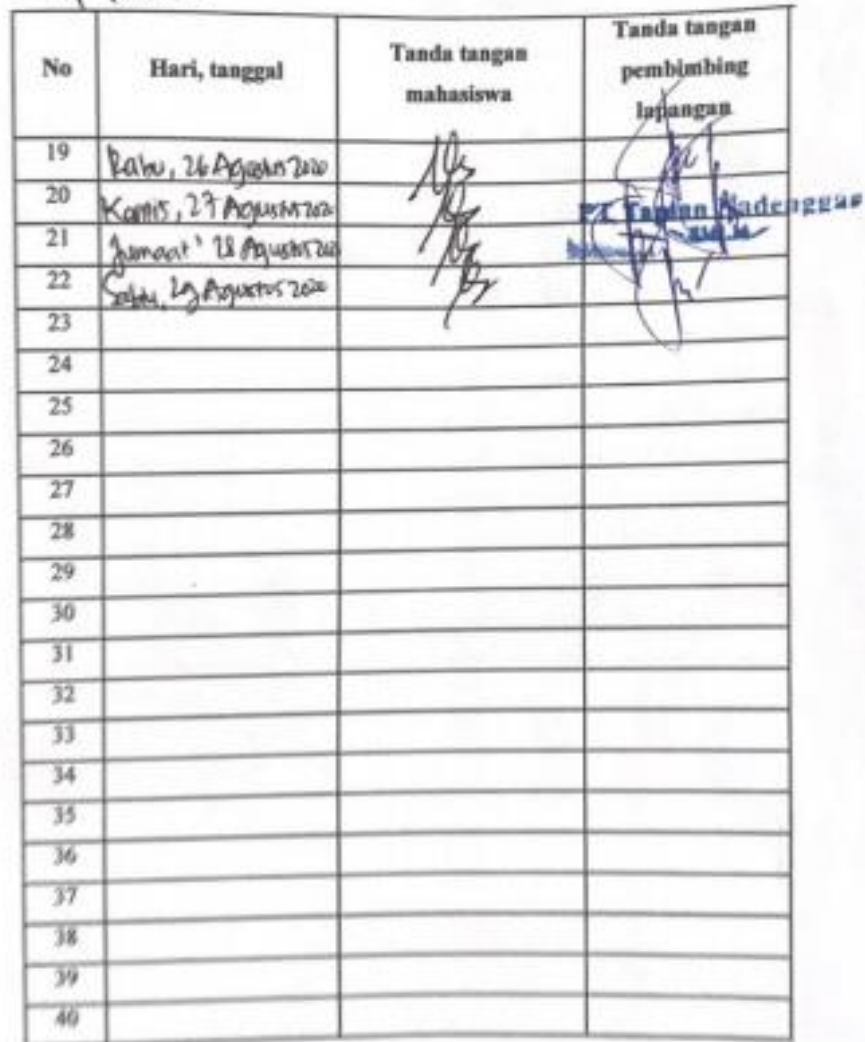 No Hari, tanggal Tanda tangan mahasiswa Tanda tangan pembimbing lapangan
19 Rabu, 26 Agustus 2020
20 Kamis, 27 Agustus 2020
PT Tapian Nadenggan
21 Jumaat, 28 Agustus 2020
22 Sabtu, 29 Agustus 2020
23
24
25
26
27
28
29
30
31
32
33
34
35
36
37
38
39
40